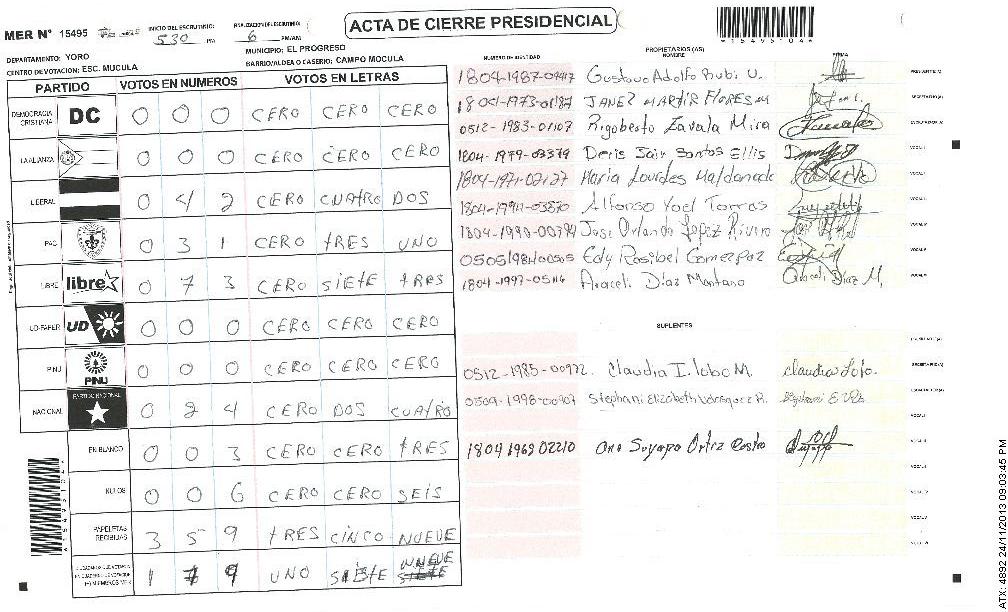 ACTA DE CIERRE PRESIDENCIAL
MER N° 15495
INICIO DEL ESCRUTINIO: 530 PM
FINALIZACION DEL ESCRUTINIO: 6 PM/AM
*15495104*
DEPARTAMENTO: YORO
MUNICIPIO: EL PROGRESO
CENTRO DE VOTACION: ESC. MUCULA
BARRIO/ALDEA O CASERIO: CAMPO MOCULA
PARTIDO VOTOS EN NUMEROS VOTOS EN LETRAS
DEMOCRACIA CRISTIANA DC 0 0 0 CERO CERO CERO
LA ALIANZA 0 0 0 CERO CERO CERO
LIBERAL 0 4 2 CERO CUATRO DOS
PAC 0 3 1 CERO TRES UNO
LIBRE libre 0 7 3 CERO SIETE TRES
UD-FAPER UD 0 0 0 CERO CERO CERO
PINU PINU 0 0 0 CERO CERO CERO
NACIONAL PARTIDO NACIONAL 0 2 4 CERO DOS CUATRO
EN BLANCO 0 0 3 CERO CERO TRES
NULOS 0 0 6 CERO CERO SEIS
PAPELETAS RECIBIDAS 3 5 9 TRES CINCO NUEVE
1 7 9 UNO SIETE NUEVE
NUMERO DE IDENTIDAD PROPIETARIOS (AS) NOMBRE FIRMA
Gustavo Adolfo Rubi U. PRESIDENTE (A)
JANEZ MARTIR FLORES M SECRETARIO (A)
0512-1983-01107 Rigoberto Zavala Mira ESCRUTADOR (A)
1804-1979-03379 Deris Jair Santos Ellis VOCAL I
1804-1971-02127 Maria Lourdes Maldonado
1804-1994-03870 Alfonso Yoel Torras
Jose Orlando Lopez Rivera
Edy Rosibel Gomez paz
1804-1997-05116 Araceli Diaz Montano Araceli Diaz M.
SUPLENTES
0512-1985-00972. Claudia I. lobo M. claudia Lobo. SECRETARIO (A)
Stephani Elizabeth Velasquez R. ESCRUTADOR (A)
1804 1969 02210 Ana Suyapa Ortiz Castro
ATX: 4892 24/11/2013 09:03:45 PM